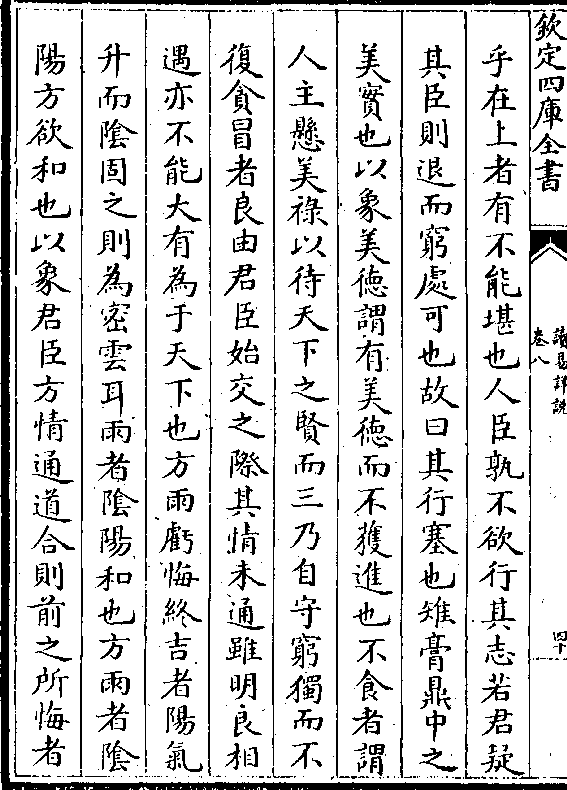 欽定四庫全書
讀易詳說
卷八
四十
乎在上者有不能堪也人臣孰不欲行其志若君疑
其臣則退而窮處可也故曰其行塞也雉膏鼎中之
美實也以象美徳謂有美徳而不獲進也不食者謂
人主懸美祿以待天下之賢而三乃自守窮獨而不
復貪冒者良由君臣始交之際其情未通雖明良相
遇亦不能大有為于天下也方雨虧悔終吉者陽氣
升而隂固之則為密雲耳雨者隂陽和也方雨者隂
陽方欲和也以象君臣方情通道合則前之所悔者